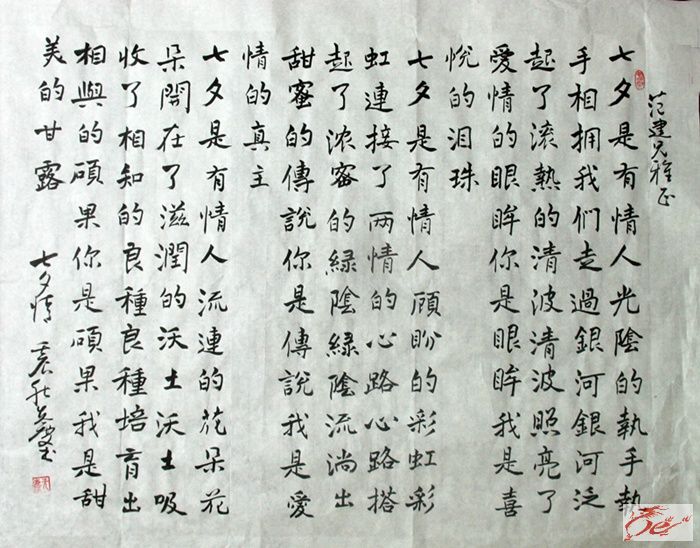 范建兄雅正
七夕是有情人光陰的執手執
手相拥我們走過銀河銀河泛
起了滚熱的清波清波照亮了
愛情的眼眸你是眼眸我是喜
悦的泪珠
七夕是有情人顧盼的彩虹彩
虹連接了两情的心路心路搭
起了浓密的緑陰緑陰流淌出
甜蜜的傳說你是傳說我是愛
情的真主
七夕是有情人流連的花朵花
朵開在了滋潤的沃土沃土吸
收了相知的良種良種培育出
相與的碩果你是碩果我是甜
美的甘露
七夕情